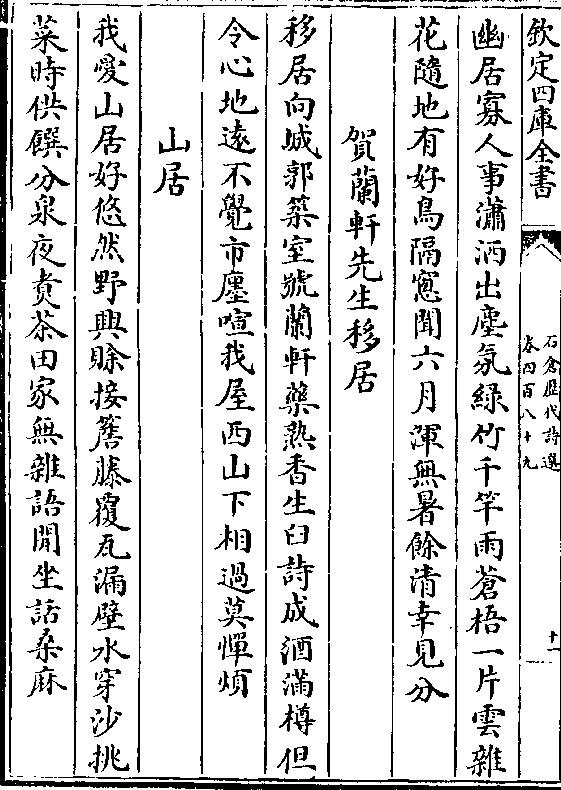 欽定四庫全書
石倉歷代詩選
卷四百八十九
十一
幽居寡人事瀟洒出塵氛綠竹千竿雨蒼梧一片雲雜
花隨地有好鳥隔窻聞六月渾無暑餘清幸見分
賀蘭軒先生移居
移居向城郭築室號蘭軒藥熟香生臼詩成酒滿樽但
令心地遠不覺市廛喧我屋西山下相過莫憚煩
山居
我愛山居好悠然野興賖接簷藤覆瓦漏壁水穿沙挑
菜時供饌分泉夜煑茶田家無雜語閒坐話桑麻